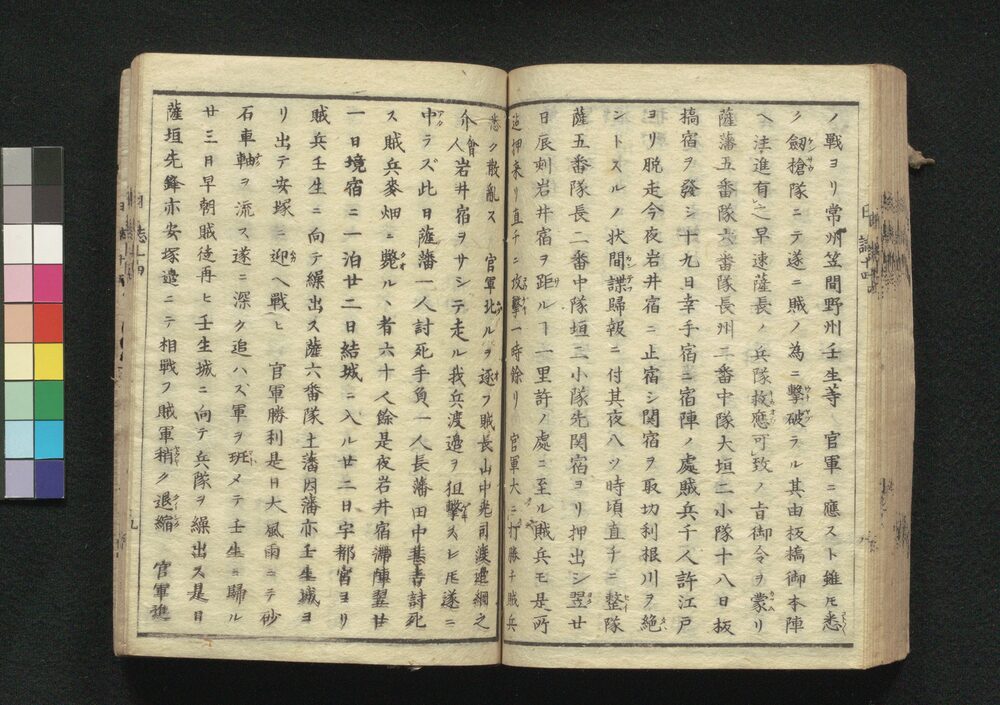 ノ戰ヨリ常州笠間野州壬生等　官軍ニ應スト雖モ悉
ク劔槍隊ニテ遂ニ賊ノ為ニ擊破ラル其由板橋御本陣
ヘ注進有之早速薩長ノ兵隊救應可致ノ旨御令ヲ蒙リ
薩藩五番隊六番隊長州二番中隊大垣二小隊十八日板
橋宿ヲ發シ十九日幸手宿ニ宿陣ノ處賊兵千人許江戸
ヨリ脱走今夜岩井宿ニ止宿シ関宿ヲ取切利根川ヲ絶
ントスルノ状間諜歸報ニ付其夜八ツ時頃直チニ整隊
薩五番隊長二番中隊垣二小隊先関宿ヨリ押出シ翌廿
日辰刻岩井宿ヲ距ルヿ一里許ノ處ニ至ル賊兵モ是所
迠押来リ直チニ攻擊一時餘リ　官軍大ニ打勝チ賊兵
悉ク散亂ス　官軍北ルヲ逐フ賊長山中光司渡邉綱之
介會人岩井宿ヲサシテ走ル我兵渡邉ヲ狙擊スレ𪜈遂ニ
中ラズ此日薩藩一人討死手負一人長藩田中甚吉討死
ス賊兵麥畑ニ斃ルヽ者六十人餘是夜岩井宿滞陣翌廿
一日境宿ニ一泊廿二日結城ニ入ル廿二日宇都宮ヨリ
賊兵壬生ニ向テ繰出ス薩六番隊土藩因藩亦壬生城ヨ
リ出テ安塚ニ迎ヘ戰ヒ　官軍勝利是日大風雨ニテ砂
石車軸ヲ流ス遂ニ深ク追ハズ軍ヲ班メテ壬生ニ歸ル
廿三日早朝賊徒再ヒ壬生城ニ向テ兵隊ヲ繰出ス是日
薩垣先鋒亦安塚邉ニテ相戰フ賊軍稍ク退縮　官軍進